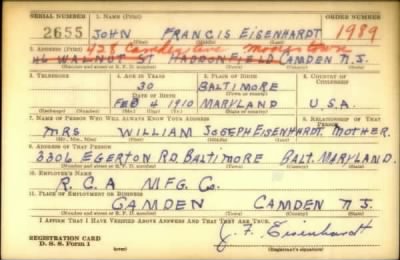 SERIAL NUMBER 1. NAME (Print) ORDER NUMBER
2655 JOHN FRANCIS EISENHARDT 1989
(First) (Middle) (Last)
428 Camden Ave Moorestown
2. ADDRESS (Print)
16 WALNUT ST HADDONFIELD CAMDEN N.J.
(Number and street or R. F. D. number) (Town) (County) (State)
3. TELEPHONE 4. AGE IN YEARS 5. PLACE OF BIRTH 6. COUNTRY OF CITIZENSHIP
30 BALTIMORE
DATE OF BIRTH (Town or county)
FEB 4 1910 MARYLAND U.S.A.
(Exchange) (Number) (Mo.) (Day) (Yr.) (State or country)
7. NAME OF PERSON WHO WILL ALWAYS KNOW YOUR ADDRESS 8. RELATIONSHIP OF THAT PERSON
MRS. WILLIAM JOSEPH EISENHARDT. MOTHER.
(Mr., Mrs., Miss) (First) (Middle) (Last)
9. ADDRESS OF THAT PERSON
3306 EGERTON RD. BALTIMORE BALT. MARYLAND.
(Number and street or R. F. D. number) (Town) (County) (State)
10. EMPLOYER'S NAME
R.C.A MFG. Co.
11. PLACE OF EMPLOYMENT OR BUSINESS
CAMDEN CAMDEN N.J.
(Number and street or R. F. D. number) (Town) (County) (State)
I AFFIRM THAT I HAVE VERIFIED ABOVE ANSWERS AND THAT THEY ARE TRUE.
REGISTRATION CARD
D. S. S. Form 1 (over) J. F. Eisenhardt
(Registrant's signature)